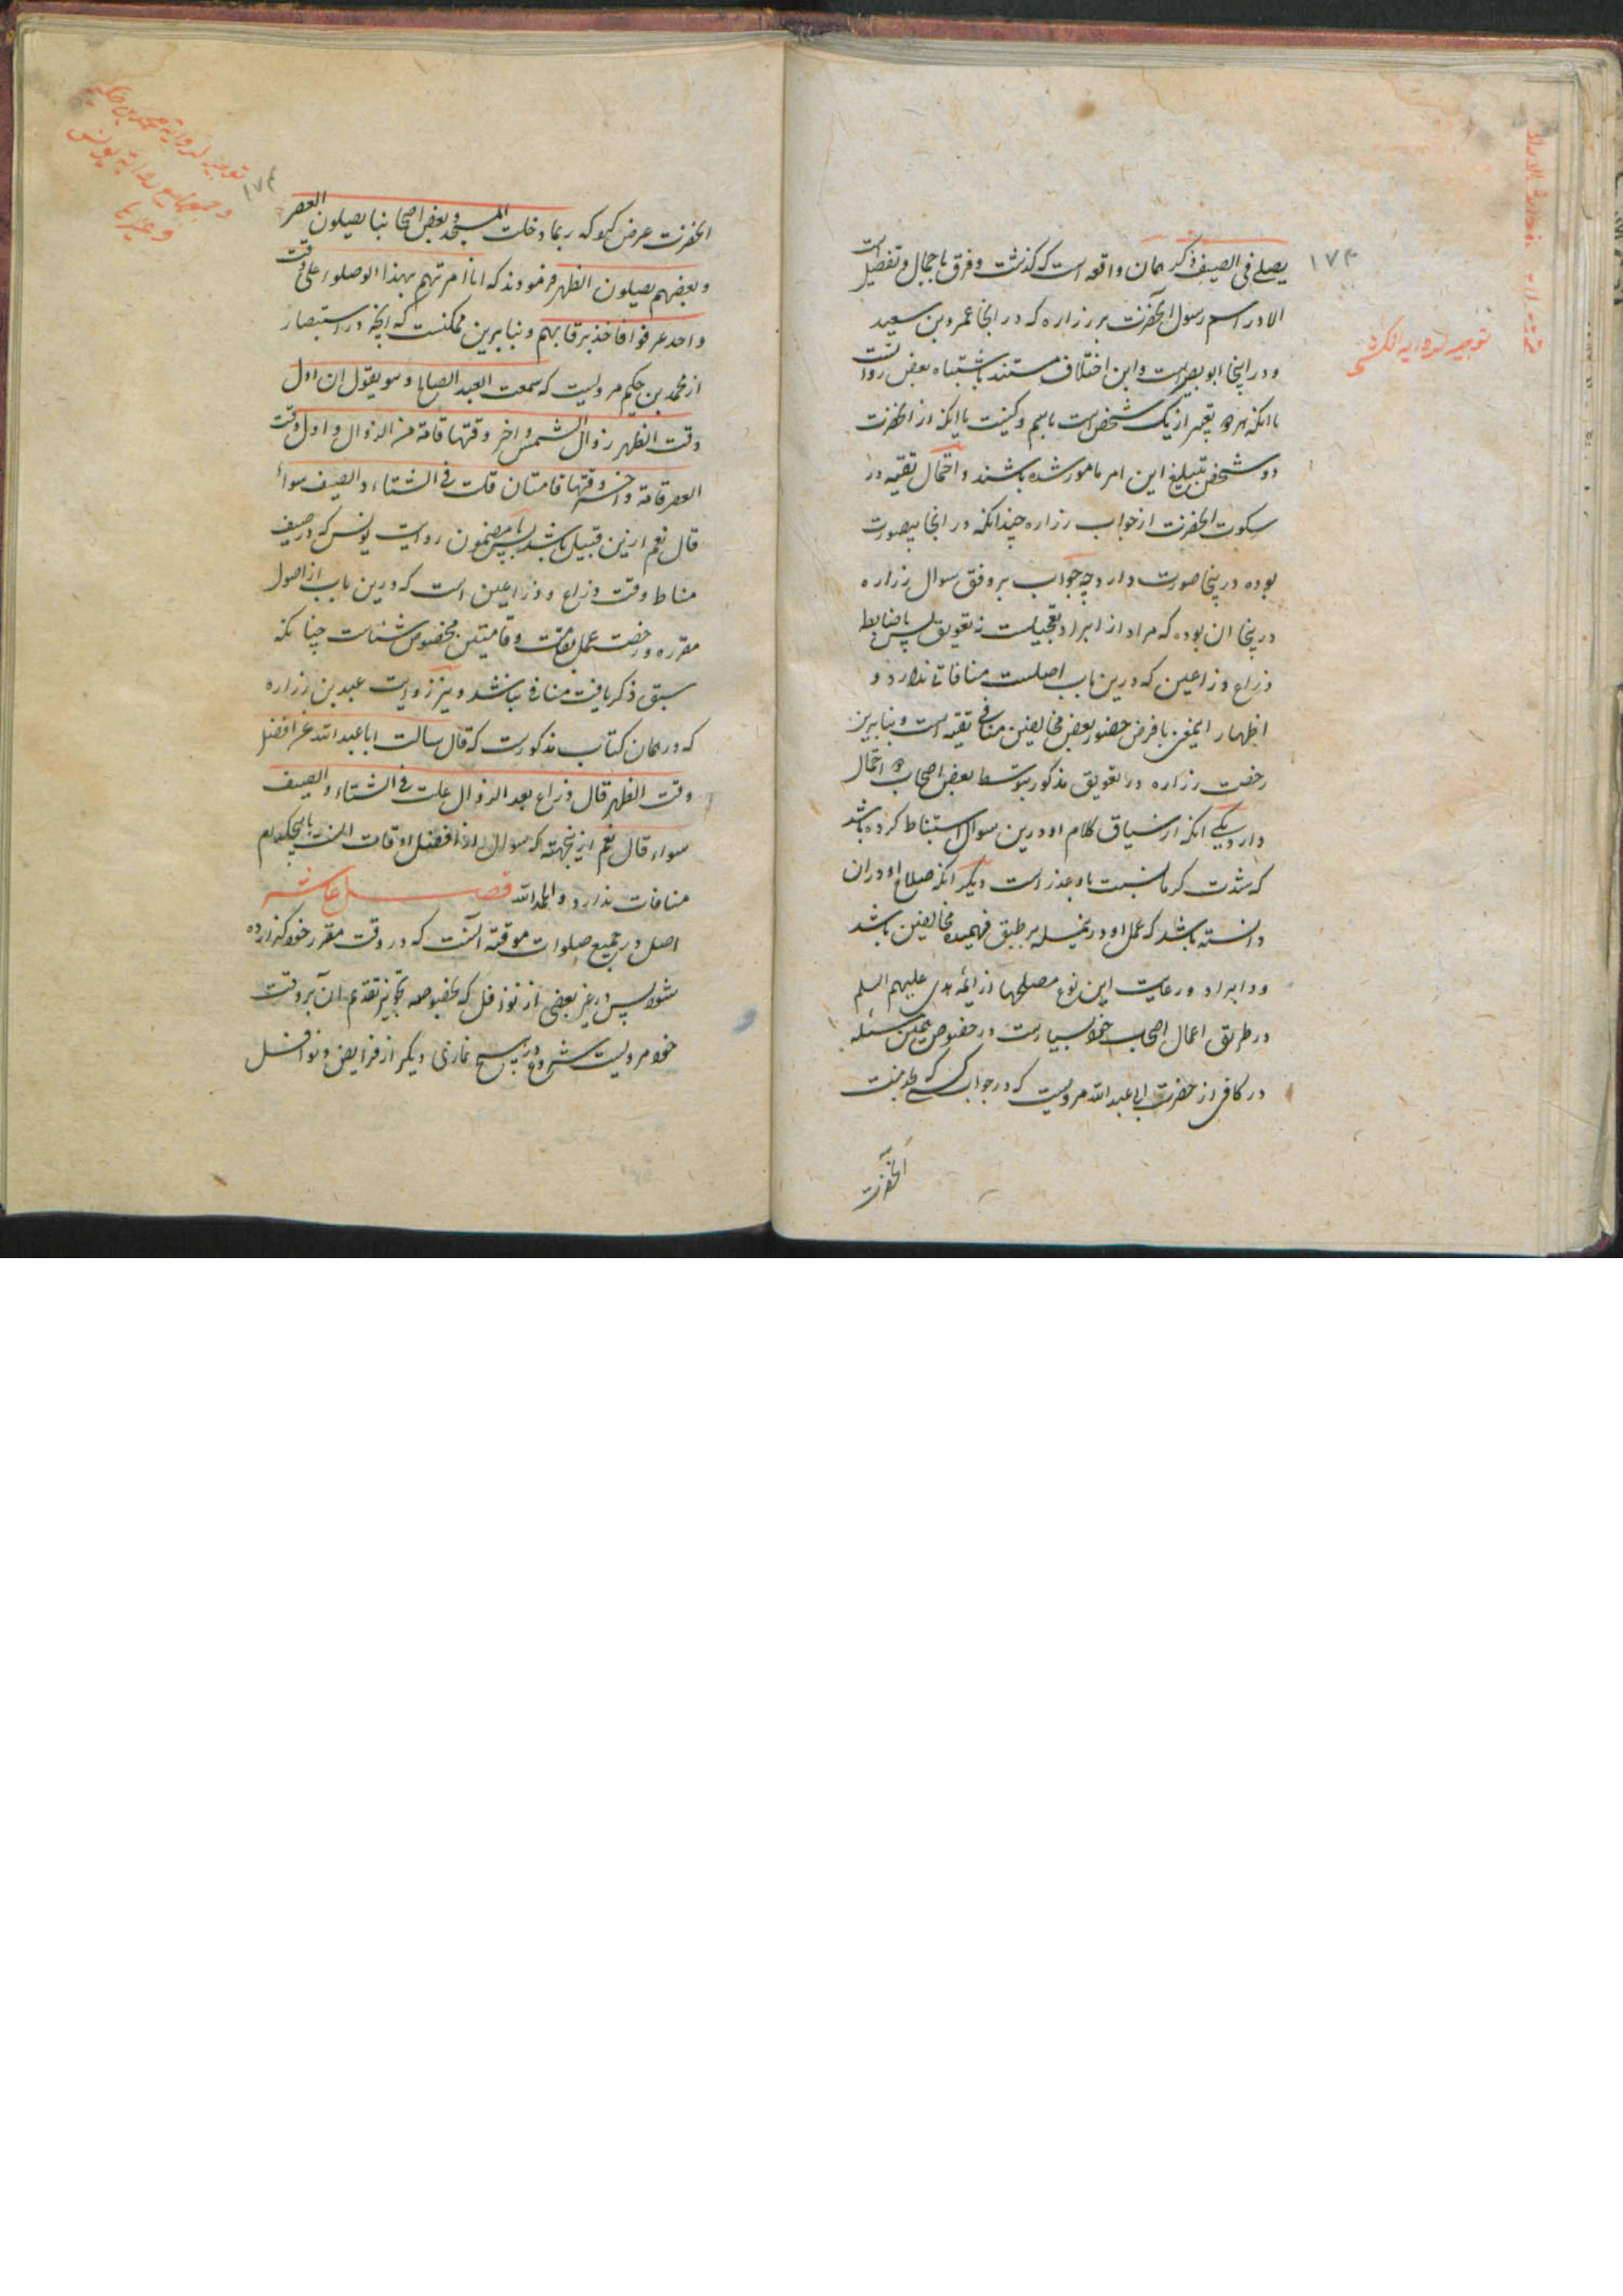 ۱۷۳
توجیه لروایه الکشی
یصلی فی الصیف و ذکر همان واقعه است که گذشت و فرق باجمال و تفصیل است
الا در اسم رسول آنحضرت بر زراره که در انجا عمرو بن سعید
و در اینجا ابو بصیر است و این اختلاف مستند باشتباه بعض روات است
یا انکه هر دو تعبیر از یک شخص است باسم و کنیت یا انکه از آنحضرت
دو شخص بتبلیغ این امر مامور شده باشند و احتمال تقیه در
سکوت آنحضرت از جواب زراره چندانکه در انجا بیصورت
بوده درینجا صورت دارد چه جواب بر وفق سوال زراره
درینجا ان بوده که مراد از ابراد تعجیلست نه تعویق پس با ضابط
ذراع و ذراعین که درین باب اصلست منافاتی ندارد و
اظهار ایمعنی با فرض حضور بعض مخالفین منافی تقیه است و بنابرین
رخصت زراره در تعویق مذکور بتوسط بعض اصحاب دو احتمال
دارد یکی انکه از سیاق کلام او درین سوال استنباط کرده باشد
که شدت کرما نسبت باو عذر است دیگر انکه صلاح او در ان
دانسته باشد که عمل او در مسئله بر طبق فهمیده مخالفین باشد
و ایراد و رعایت این نوع مصلحتها از ائمه هدی علیهم السلم
در طریق اعمال اصحاب خود بسیارست در خصوص همین مسئله
در کافی از حضرت ابی عبد الله مرویست که در جواب کسی که بخدمت
آنحضرت
۱۷۴
توجیه لروایة محمد بن حکیم
و جمعها مع روایة یونس
و غیرها
آنحضرت عرض کرد که ربما دخلت المسجد و بعض اصحابنا یصلون العصر
و بعضهم یصلون الظهر فرمودند که انا امرتهم بهذا لو صلوا علی وقت
واحد عرفوا فاخذ برقابهم و بنابرین ممکنست که انچه در استبصار
از محمد بن حکیم مرویست که سمعت العبد الصالح و هو یقول ان اول
وقت الظهر زوال الشمس و اخر وقتها قامة من الزوال و اول وقت
العصر قامة و اخر وقتها قامتان قلت فی الشتاء و الصیف سواء
قال نعم ازین قبیل باشد پس با مضمون روایت یونس که در صیف
مناط وقت ذراع و ذراعین است که درین باب از اصول
مقرره و رخصت عمل بقامت و قامتین مخصوص شتاست چنانکه
سبق ذکر یافت منافی نباشد و نیز روایت عبید بن زراره
که در همان کتاب مذکورست که قال سالت ابا عبد الله عن افضل
وقت الظهر قال ذراع بعد الزوال قلت فی الشتاء و الصیف
سواء قال نعم ازینجهته که سوال از افضل اوقات است با هیچکدام
منافات ندارد و الحمد لله فصل عاشر
اصل در جمیع صلوات موقته آنست که در وقت مقرر خود گذارده
شود پس در غیر بعضی از نوافل که بخصوصه تجویز تقدیم ان بر وقت
خود مرویست شروع در هیچ نمازی دیگر از فرایض و نوافل